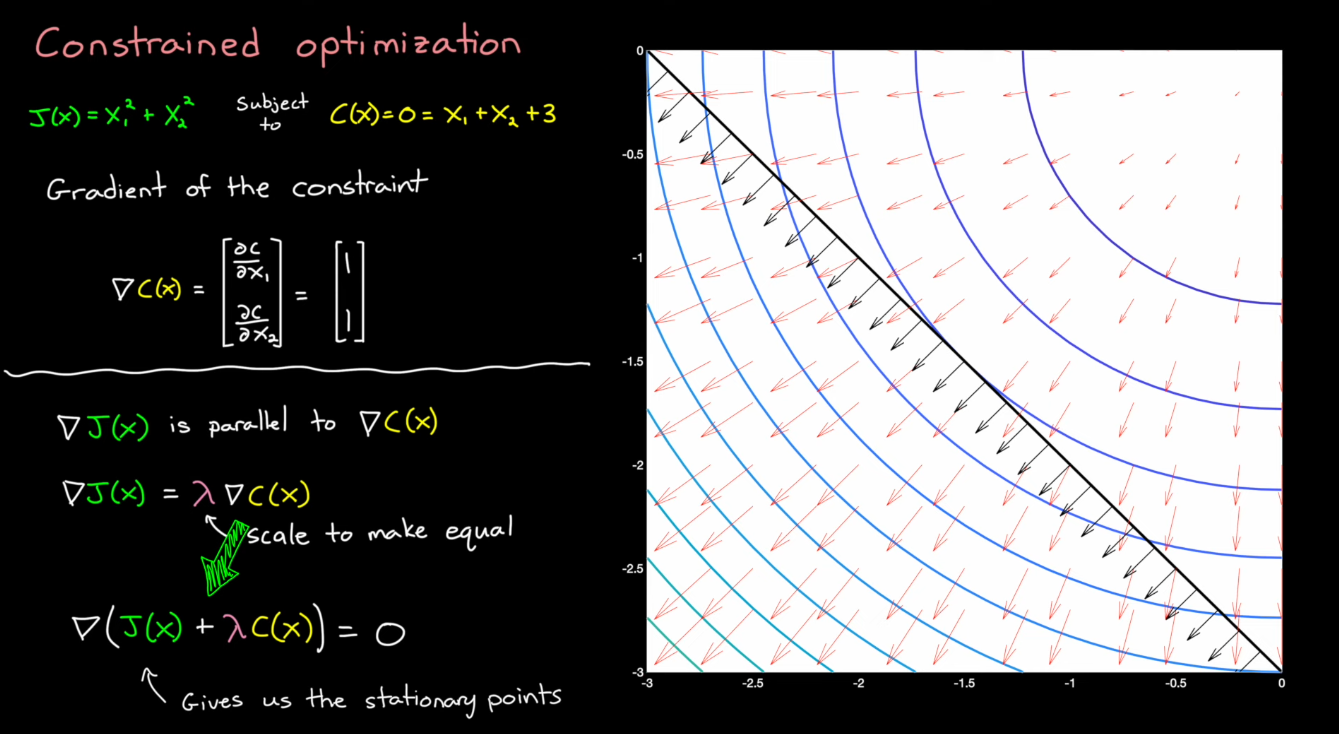 Constrained optimization
J(x) = x₁² + x₂² Subject to C(x) = 0 = x₁ + x₂ + 3
Gradient of the constraint
∇C(x) = [∂C/∂x₁ ∂C/∂x₂] = [1 1]
∇J(x) is parallel to ∇C(x)
∇J(x) = λ∇C(x)
scale to make equal
∇(J(x) + λC(x)) = 0
Gives us the stationary points
0
-0.5
-1
-1.5
-2
-2.5
-3
-3 -2.5 -2 -1.5 -1 -0.5 0